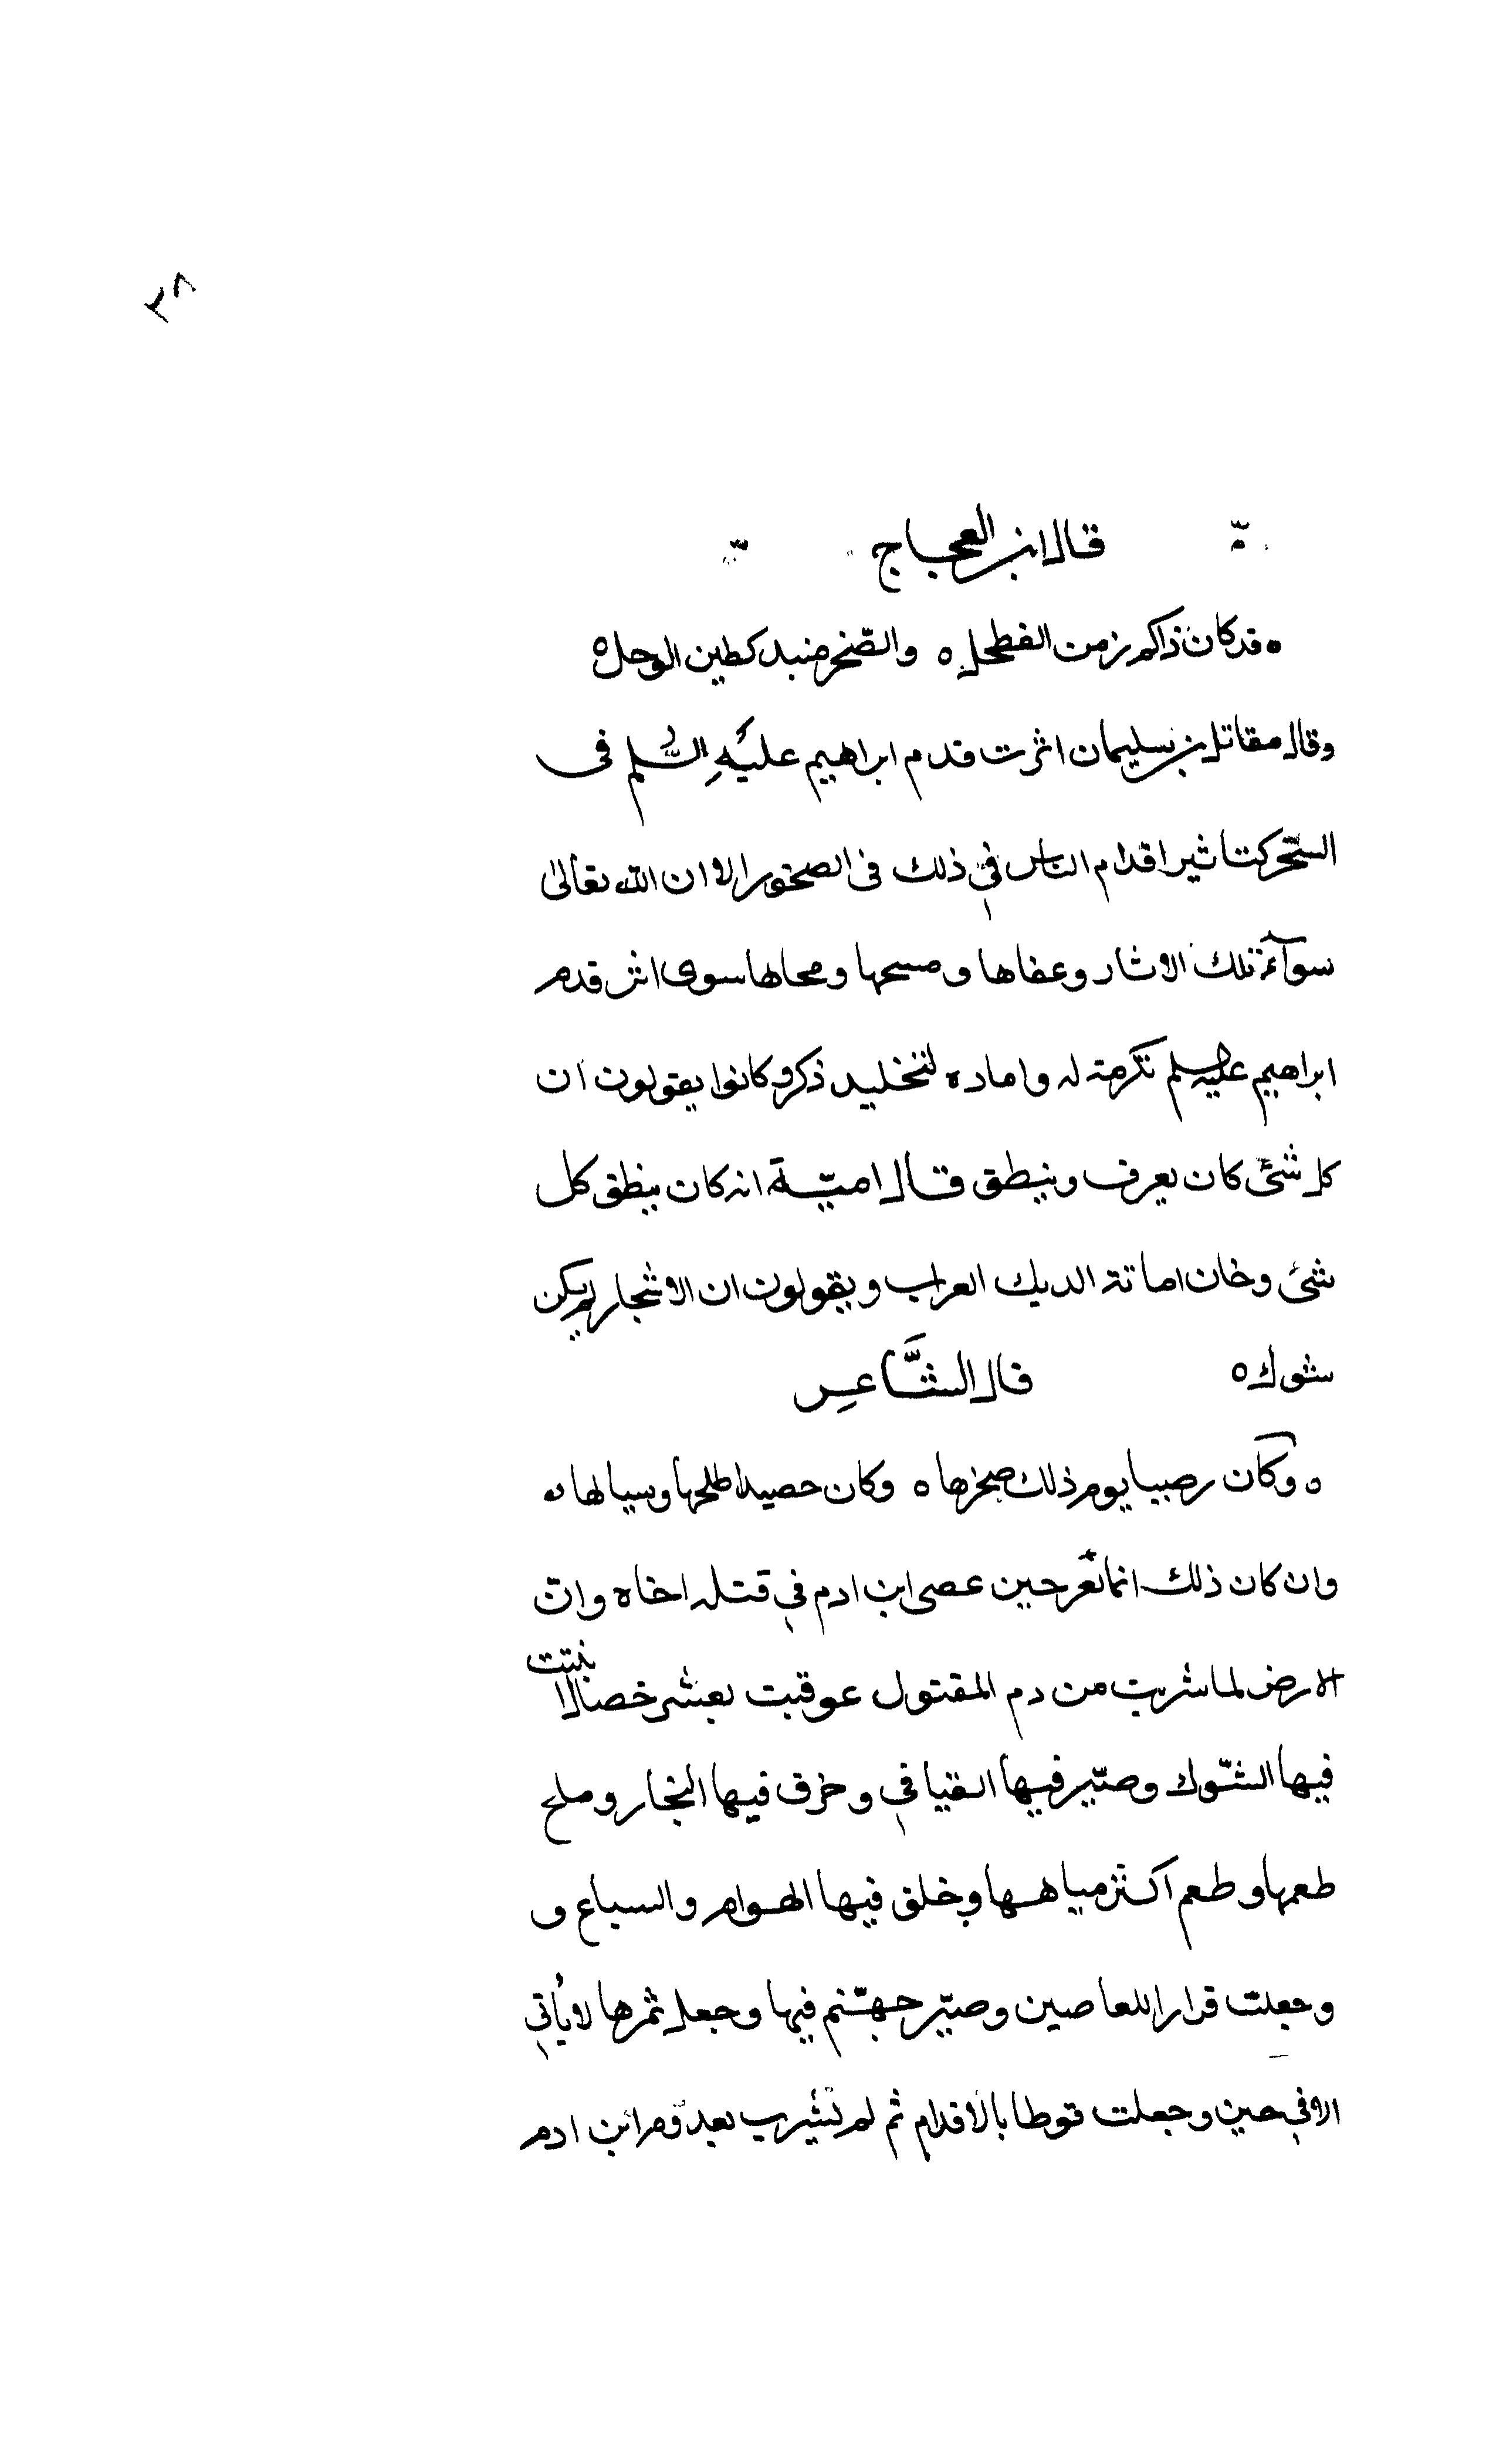 ٣٨
قال ابن العجاج
ه قد كان ذاكم زمن الفطحل ه والصّخر مبتل كطين الوحل ه
وقال مقاتل بن سليمان اثرت قدم ابراهيم عليه السّلم فى
كتاثير اقدام الناس في ذلك فى الصخور الا ان الله تعالى
تلك الاثار وعفاها ومسحها ومحاها سوى اثر قدم
ابراهيم عليه السلم تكرمة له واماده لتخليد ذكر وكانوا يقولون ان
كل شئ كان يعرف وينطق قال اميّة انه كان ينطق كل
شئ وخان امانة الديك الغراب ويقولون ان الاشجار لم يكن
شوك ه قال الشَّاعر
ه وكان رصيبا يوم ذلك صخرها ه وكان حصيدا طلحها وسيالها ه
وان كان ذلك انما تغر حين عصى ابن ادم في قتله اخاه وان
الارض لما شربت من دم المقتول عوقبت بعشر خصال انبتت
فيها الشّوك وصيّر فيها الفيافي وخرق فيها البخار وملح
طعمها وطعم اكثر مياهها وخلق فيها الهوام والسباع و
وجعلت قرارا للعاصين وصيّر جهنّم فيها وجعل ثمرها لا يأتي
الا في حين وجعلت توطا بالاقدام ثم لم تشرب بعد دم ابن ادم